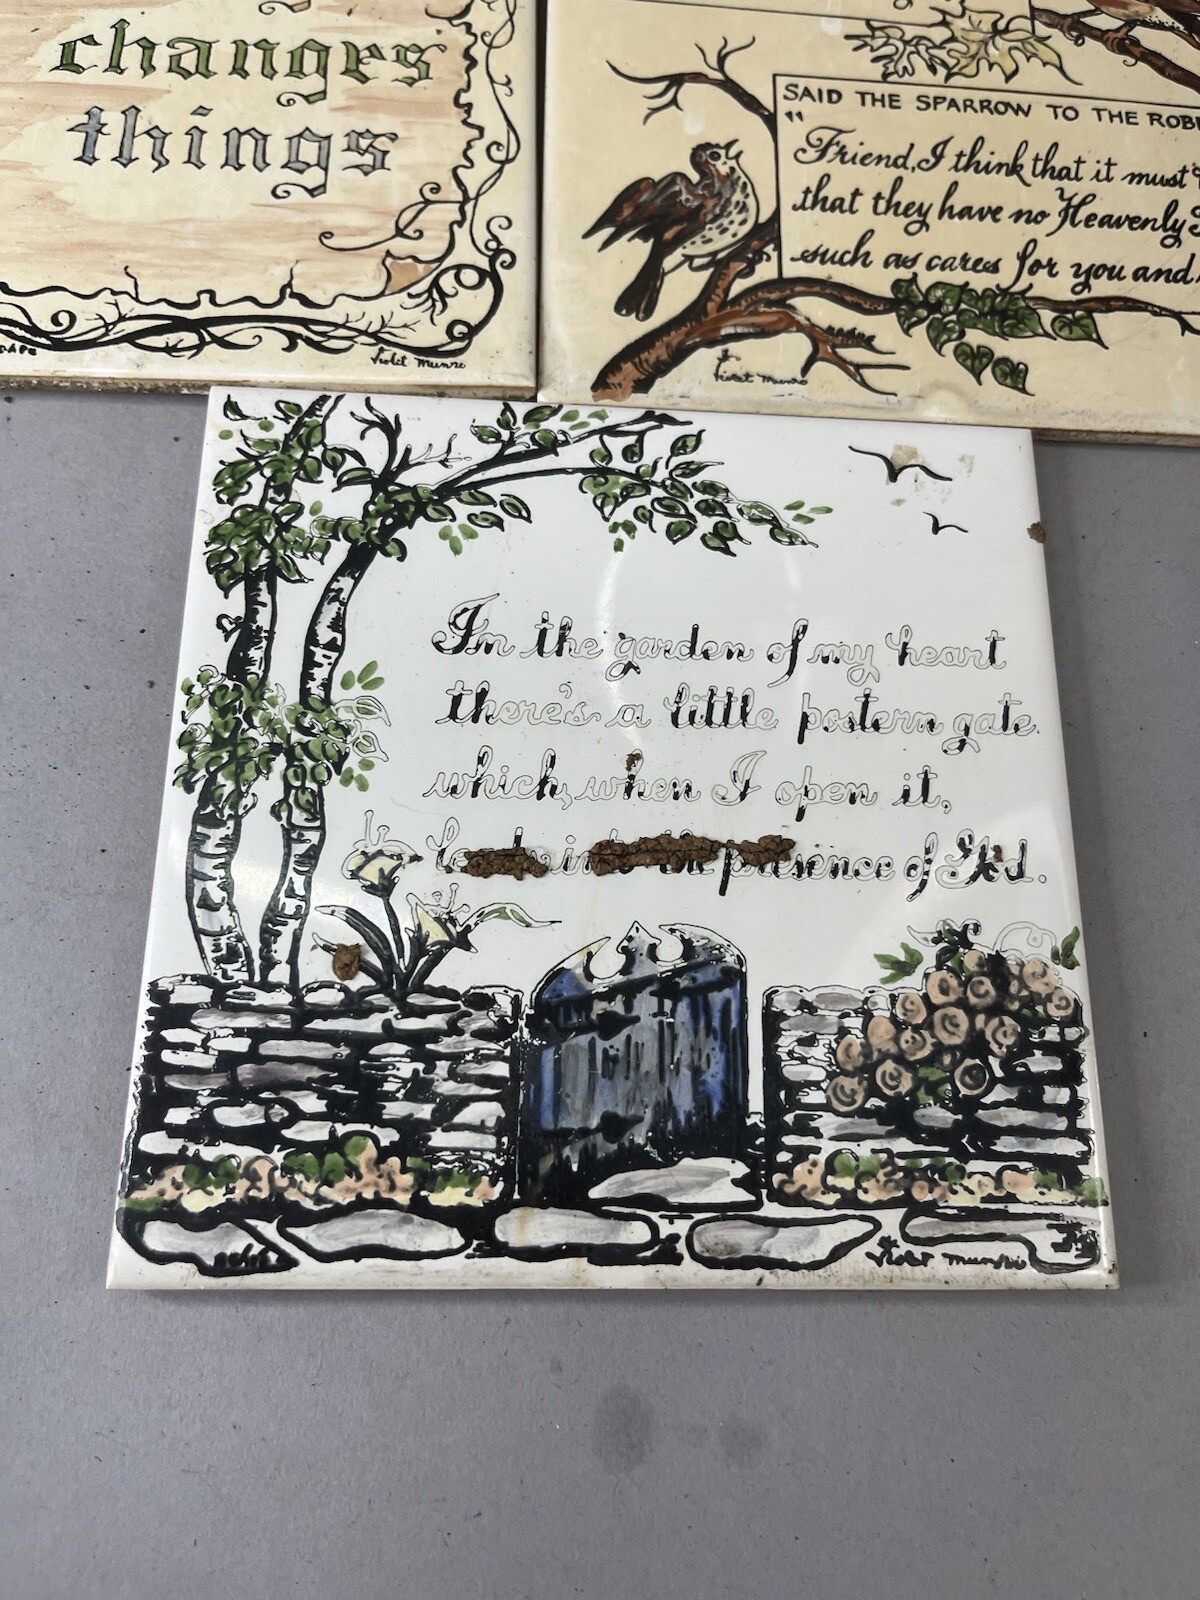 changes
things
Violet Munro
SAID THE SPARROW TO THE
"Friend, I think that it must
that they have no Heavenly
such as cares for you and
Violet Munro
In the garden of my heart
there's a little postern gate.
which, when I open it,
presence of God.
Violet Munro